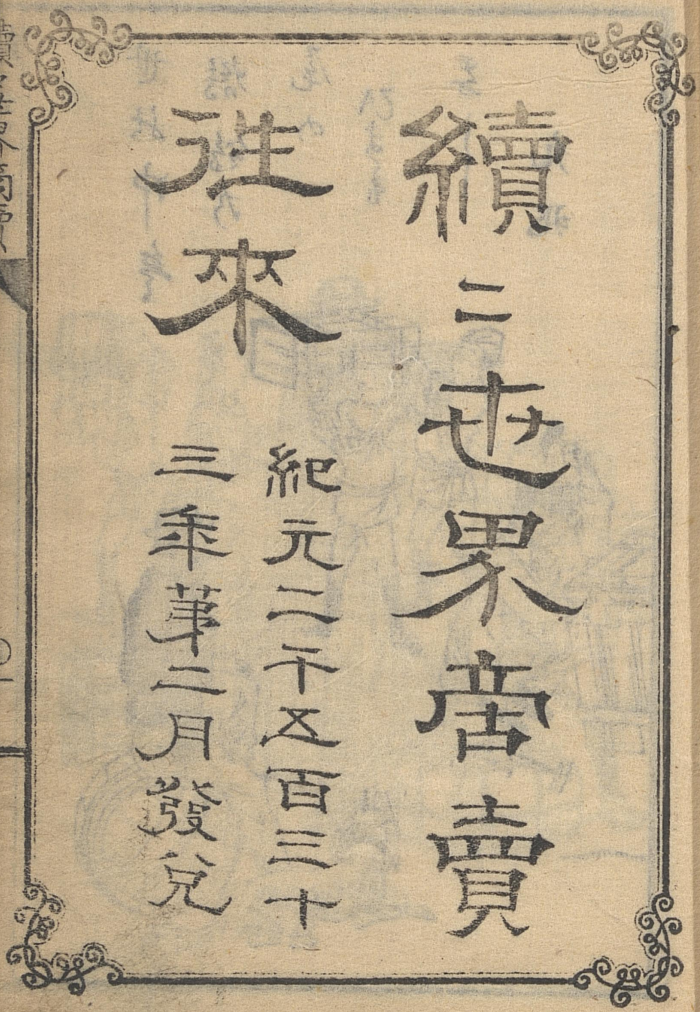 續二世界商賣
往來
紀元二千五百三十
三年第二月發兌